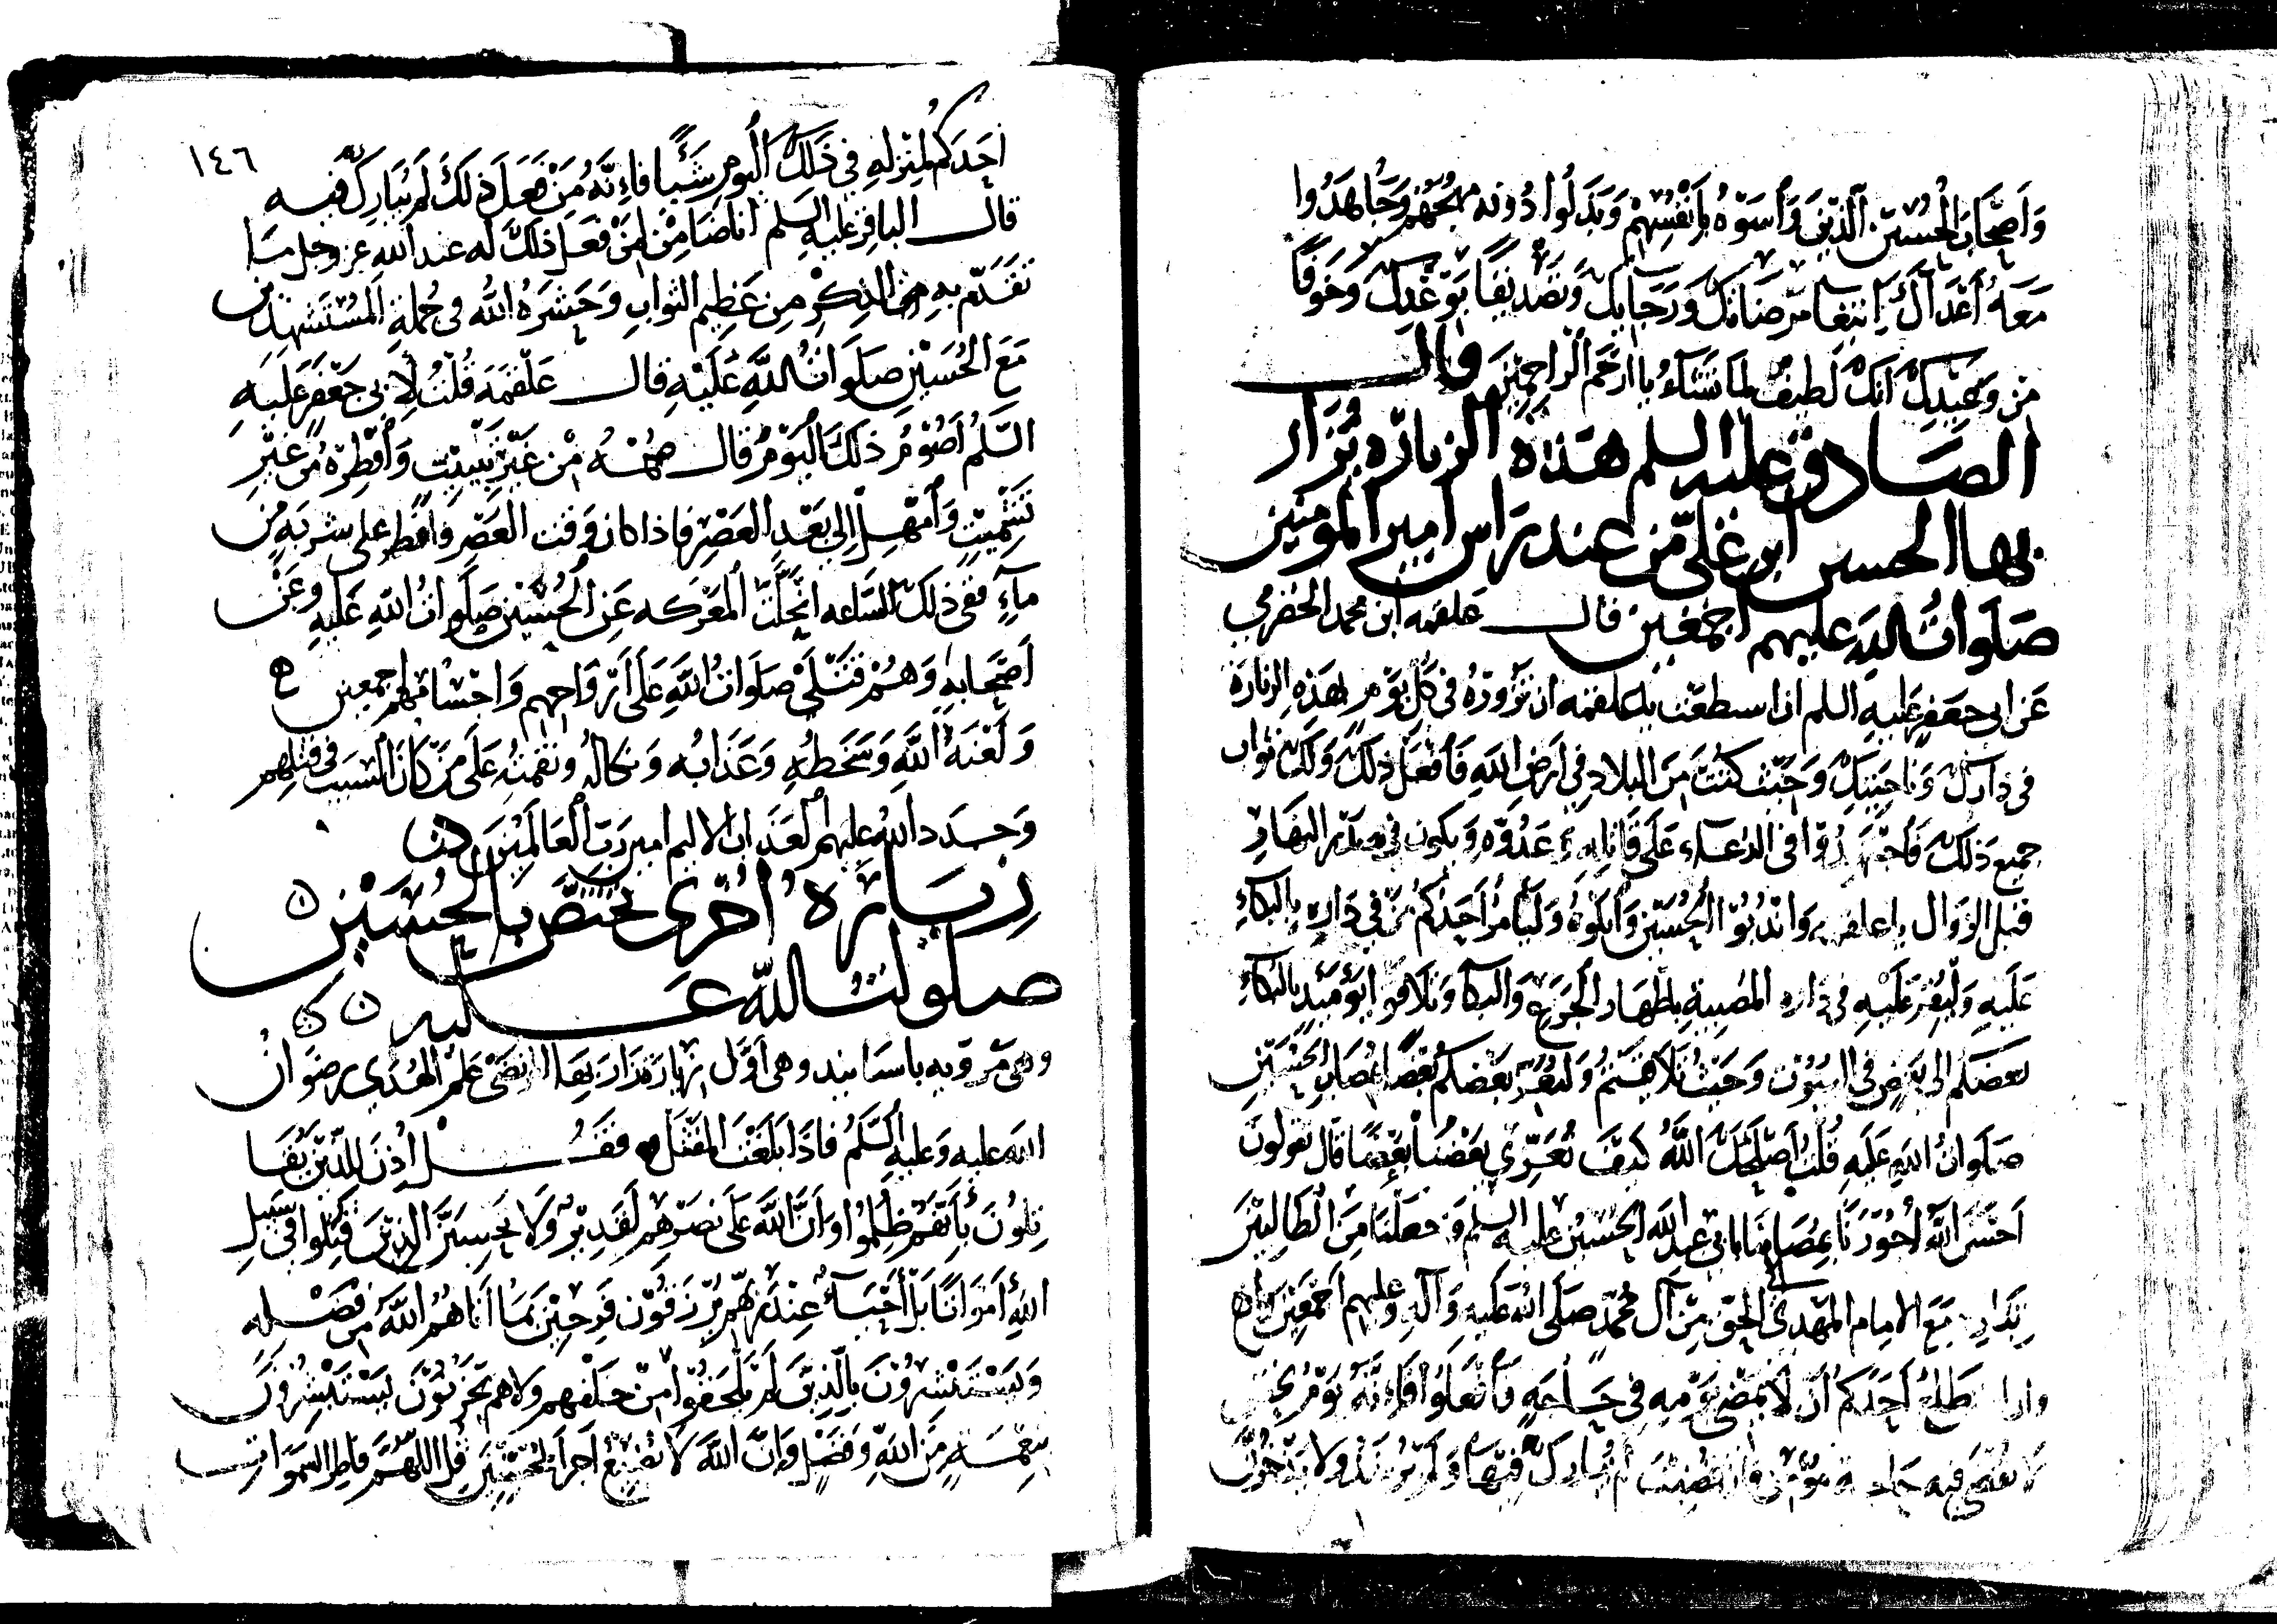 وَاَصْحَابَ الْحُسَيْنِ الَّذِينَ وَاَسَوْهُ بِأَنْفُسِهِمْ وَبَذَلُوا دُونَهُ مُهَجَهُمْ وَجَاهَدُوا
مَعَهُ أَعْدَآءَكَ اِبْتِغَا مَرْضَاتِكَ وَرَجَايِكَ وَتَصْدِيقًا بِوَعْدِكَ وَخَوْفًا
مِنْ وَعِيْدِكَ اِنَّكَ لَطِيفٌ لِمَا تَشَآءُ يا ارْحَمَ الرَّاحِمِيْنَ وقال
الصَّادق عليه السلم هَذِهِ الزيارَه يُزَار
بها الحسين ابن عَلي من عند رَاس امِير المومنِين
صَلَوَاتُ اللهِ عليهم اجْمَعِيْن قال علقمه ابن محمد الحضرمي
عَن ابى جعفر عَلَيهِ السلم ان اسطعْت يا علقمه ان تَزُورَهُ فى كُلِّ يَوْمٍ بِهَذِهِ الزيارَة
فى دَارِكَ وَنَاحِيَتِكَ وَحَيْثُ كُنْتَ مِنَ البلادِ فِي أَرْضِ اللهِ فَافْعَلْ ذلِكَ وَلَكَ ثَوابُ
جميع ذَلِكَ فَاجْتَهِدُوْا فى الدُعَاءِ عَلَى قَاتِلِهِ وَعَدُوِّهِ وَيكون في صَدْرِ النهَارِ
قبل الزوَال يا علقمه وَانْدُبُوْا الْحُسَيْنَ وَابْكُوْهُ وَلْيَأمُرْ اَحَدُكُم مَنْ فِي دَارِهِ بِالبُكَآءِ
عَلَيهِ وَلْيُقِمْ عَلَيْهِ فى دَارِهِ المصِيبةِ باظْهَار الجَزَعِ وَالبكآ وَتَلَاقَوا يَوْمَئِذٍ بالبُكآءِ
بعضكم الى بَعْضٍ فى البُيُوْتِ وَحَيْثُ تَلَاقَيْتُمْ وَلْيُعَزِّ بَعْضُكم بَعْضًا بمُصَابِ الحُسَيْنِ
صَلَوَاتُ اللهِ عَلَيهِ قُلْتُ اَصْلَحَكَ اللَّهُ كَيْفَ يُعَزِّي بَعْضُنَا بَعْضًا قال تقولونَ
اَحْسَنَ اللهُ اُجُوْرَنَا بِمُصَابِنَا بابى عبدِ الله الْحُسَيْنِ عليه السلم وَجَعَلَنَا مِنَ الطَّالِبِيْنَ
بِثَارِهِ مَعَ الامام المَهْدِي الى الحَقِّ مِنْ آل مُحَمَّدٍ صَلَى اللهُ عَلَيهِ وَآلهِ وَعَلَيهم أَجْمَعِيْنَ
اَحَدُكُم اَنْ لَا يَمْضِى يَوْمَهِ فِى حَاجَةٍ فَافْعَلُوا فَاِنَّهُ يَوْمُ نَحْسٍ
لا تُقْضَى فيه حَاجَةُ مُؤْمِنٍ وَاِنْ قُضِيَتْ لم يُبَارَكْ فِيْهَا وَلَم يَرْشُدْ وَلا يَدَّخِرُنَّ
١٤٦
اَحَدُكُم لِمَنْزِلِهِ فِي ذَلِكَ الْيَوْمِ شَيْئًا فَاِنَّهُ مَنْ فَعَلَ ذلِكَ لَم يُبَارَكْ فيه
قال الباقر عليه السلم اَنا ضَامِنٌ لِمَنْ فَعَلَ ذلكَ لَه عند اللهِ عز وجل ما
تَقَدَّم بِهِ الذِكْرُ مِن عَظِيمِ الثَوابِ وَحَشَرَهُ اللهُ فى جُملَةِ المُسْتَشْهَدِين
مَعَ الحُسَيْنِ صَلَوَاتُ اللَّهِ عَلَيْهِ قال عَلْقَمَة قُلْتُ لِأبى جَعْفَر عَلَيهِ
السَّلم اَصُوْمُ ذلكَ اَلْيَوْمَ قال صُمْهُ مِنْ غَيْرِ تَبْيِيْتٍ وَأَفْطِرْهُ من غَيْرِ
تَشْمِيْتٍ وَأَمْهِلْ اِلى بَعْدِ العَصْرِ فَاذا كان وَقْت العَصْرِ فافْطر على شربَةٍ مِن
مآءٍ ففى ذلكَ السَّاعه انْجَلَت المَعْرَكه عَنِ الْحُسَيْنِ صَلَواتُ اللهِ عَلَيهِ وعَنْ
اَصْحَابِهِ وَهُم قَتْلَى صلَوَاتُ اللهِ عَلَى اَرْوَاحِهِم وَاجْسَامِهِم اجمعين
وَلَعْنَة اللهِ وَسَخَطُهِ وَعَذَابُه وَنكالُه ونقمتُه عَلَى مَنْ كَانَ السَبَب فى قَتْلِهِم
وَجَدد اللهُ عليهم العَذَابَ الاليم امين رَبَّ العَالَمِيْنَ
زيَارَه اُخْرى تختص بالْحُسَيْنِ
صلوات اللّه عَليه
وهى مَرْوِيه باسَانيد وهى اَوَّل زيَارَةٍ زَارَ بِهَا المرتضَى عَلَمُ الهُدَى رضوَانُ
الله عليه وَعليهِ السَّلَم فاذا بَلَغْتَ المَقْتَل فقُل اُذِنَ لِلَّذِيْنَ يُقَا
تلُونَ بِأَنَّهُمْ ظُلِمُوا وَاَنَّ اللَّهَ عَلَى نَصْرِهِم لَقَدِيرٌ وَلا تَحْسِبَنَّ الذِيْنَ قُتِلُوا فِى سَبِيلِ
اللهِ أَمْوَاتًا بَلْ أَحْيَآءٌ عِنْدَ رَبِّهِمْ يُرْزَقُوْن فَرِحِيْنَ بِمَا اَتَاهُمُ اللَّهُ مِنْ فَضْلِهِ
وَيَسْتَبْشِرُوْنَ بِالَّذِيْنَ لَم يَلْحَقُوْا بِهِمْ مِنْ خَلْفِهِم وَلَا هُم يَحْزَنُوْنَ يَسْتَبْشِرُونَ
بِنِعْمَةٍ مِنَ اللهِ وَفَضْلٍ وَاَنَّ اللَّهَ لَا يُضِيْعُ اَجْرَ قُل اللهُمَّ فاطِر السَموَاتِ